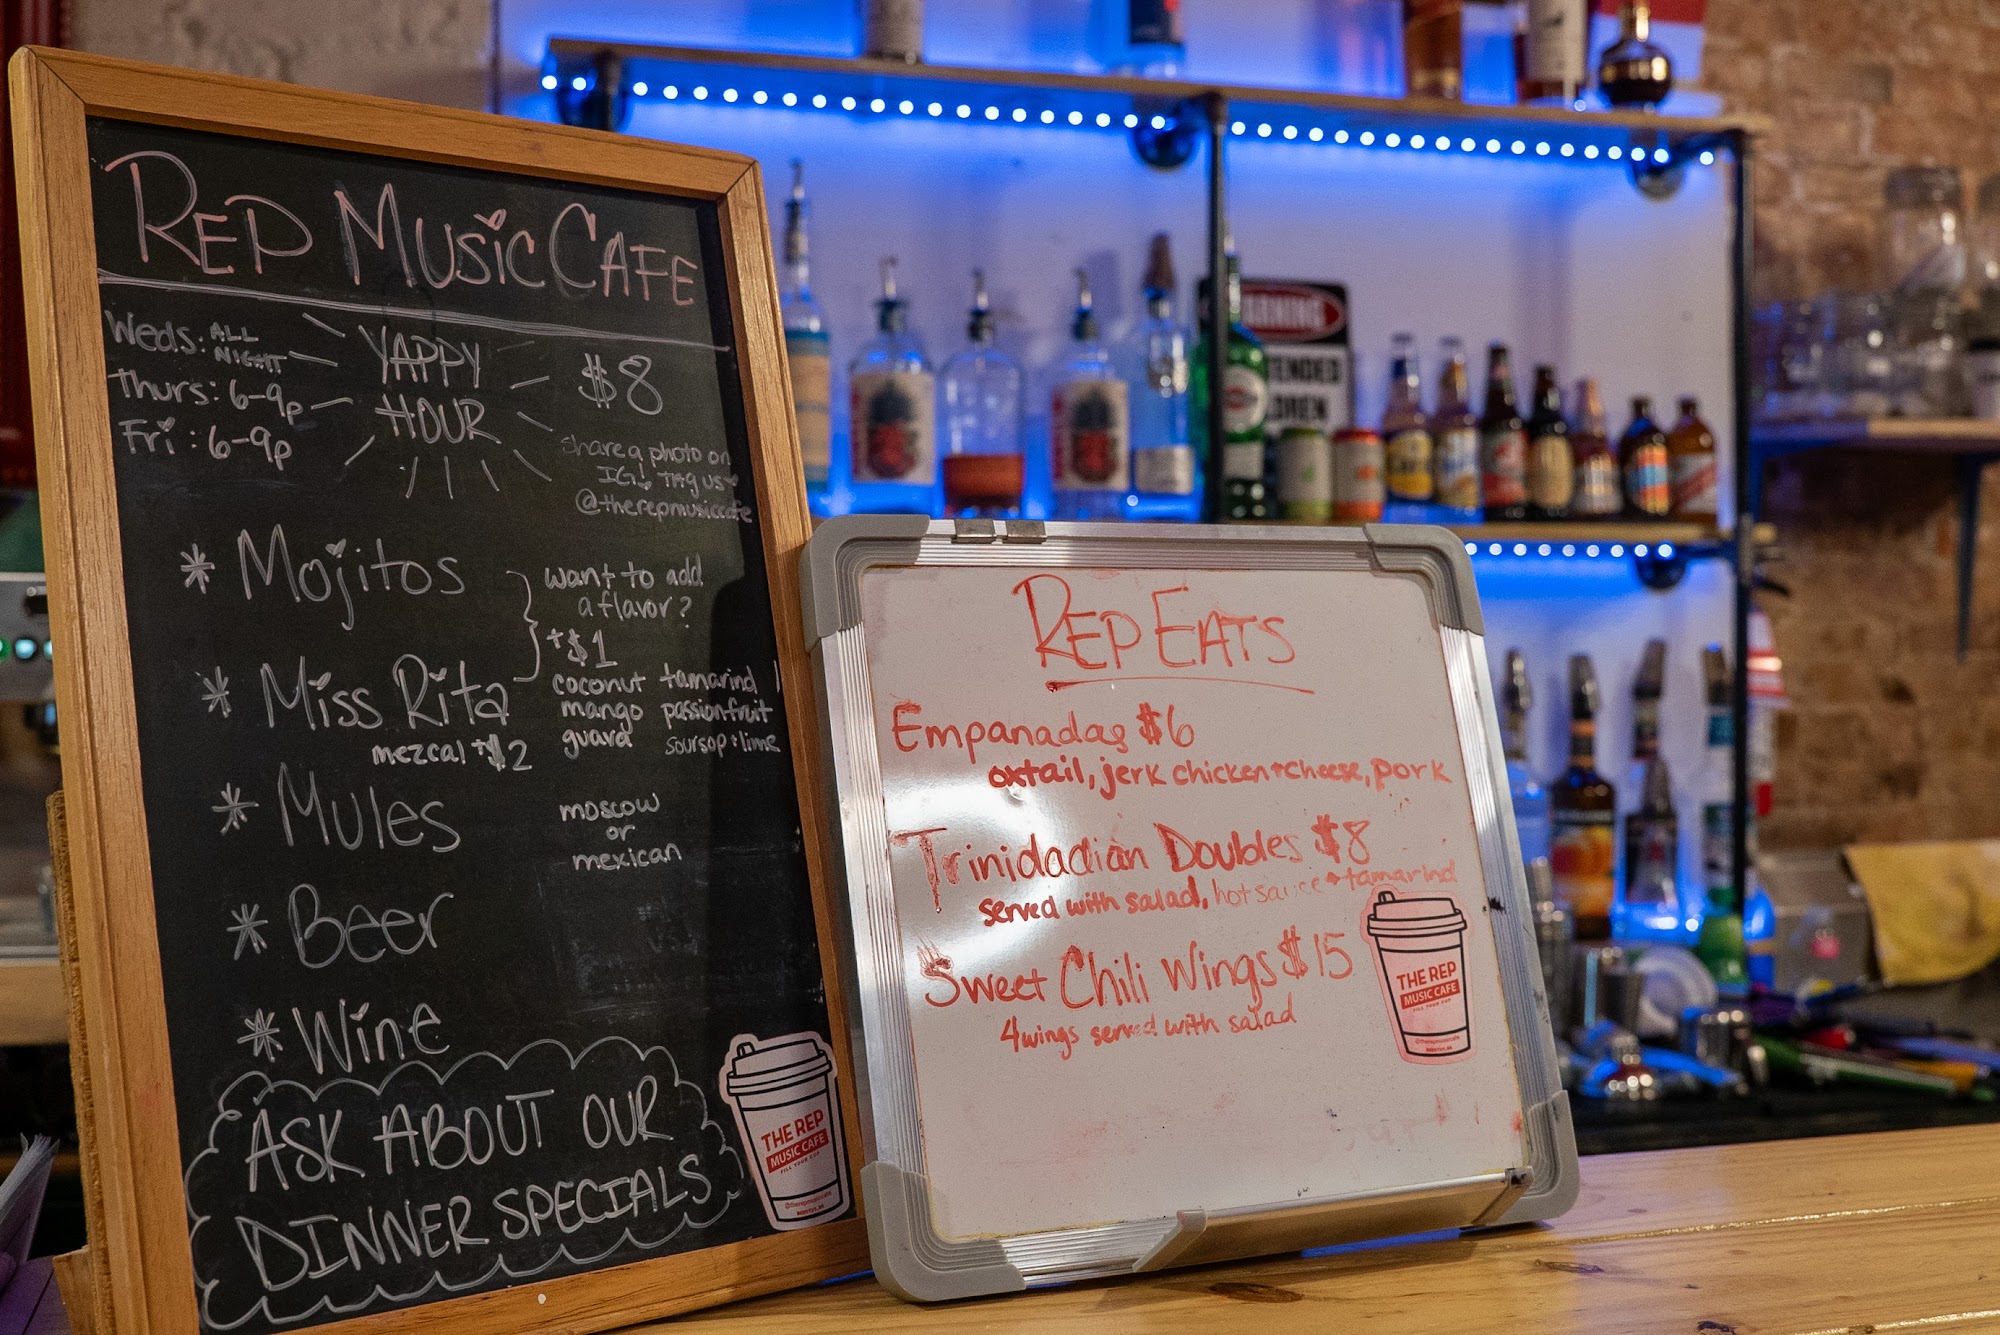 REP MUSIC CAFE
Weds: ALL NIGHT
Thurs: 6-9p
Fri: 6-9p
YAPPY
HOUR
$8
share a photo on
IG! TAG US
@therepmusiccafe
* Mojitos
want to add
a flavor?
+$1
coconut tamarind
mango passionfruit
guava soursop+lime
* Miss Rita
mezcal +$2
* Mules
moscow
or
mexican
* Beer
* Wine
ASK ABOUT OUR
DINNER SPECIALS
THE REP
MUSIC CAFE
FILL YOUR CUP
@therepmusiccafe
REP EATS
Empanadas $6
oxtail, jerk chicken+cheese, pork
Trinidadian Doubles $8
served with salad, hot sauce + tamarind
Sweet Chili Wings $15
4 wings served with salad
THE REP
MUSIC CAFE
FILL YOUR CUP
@therepmusiccafe
WARNING